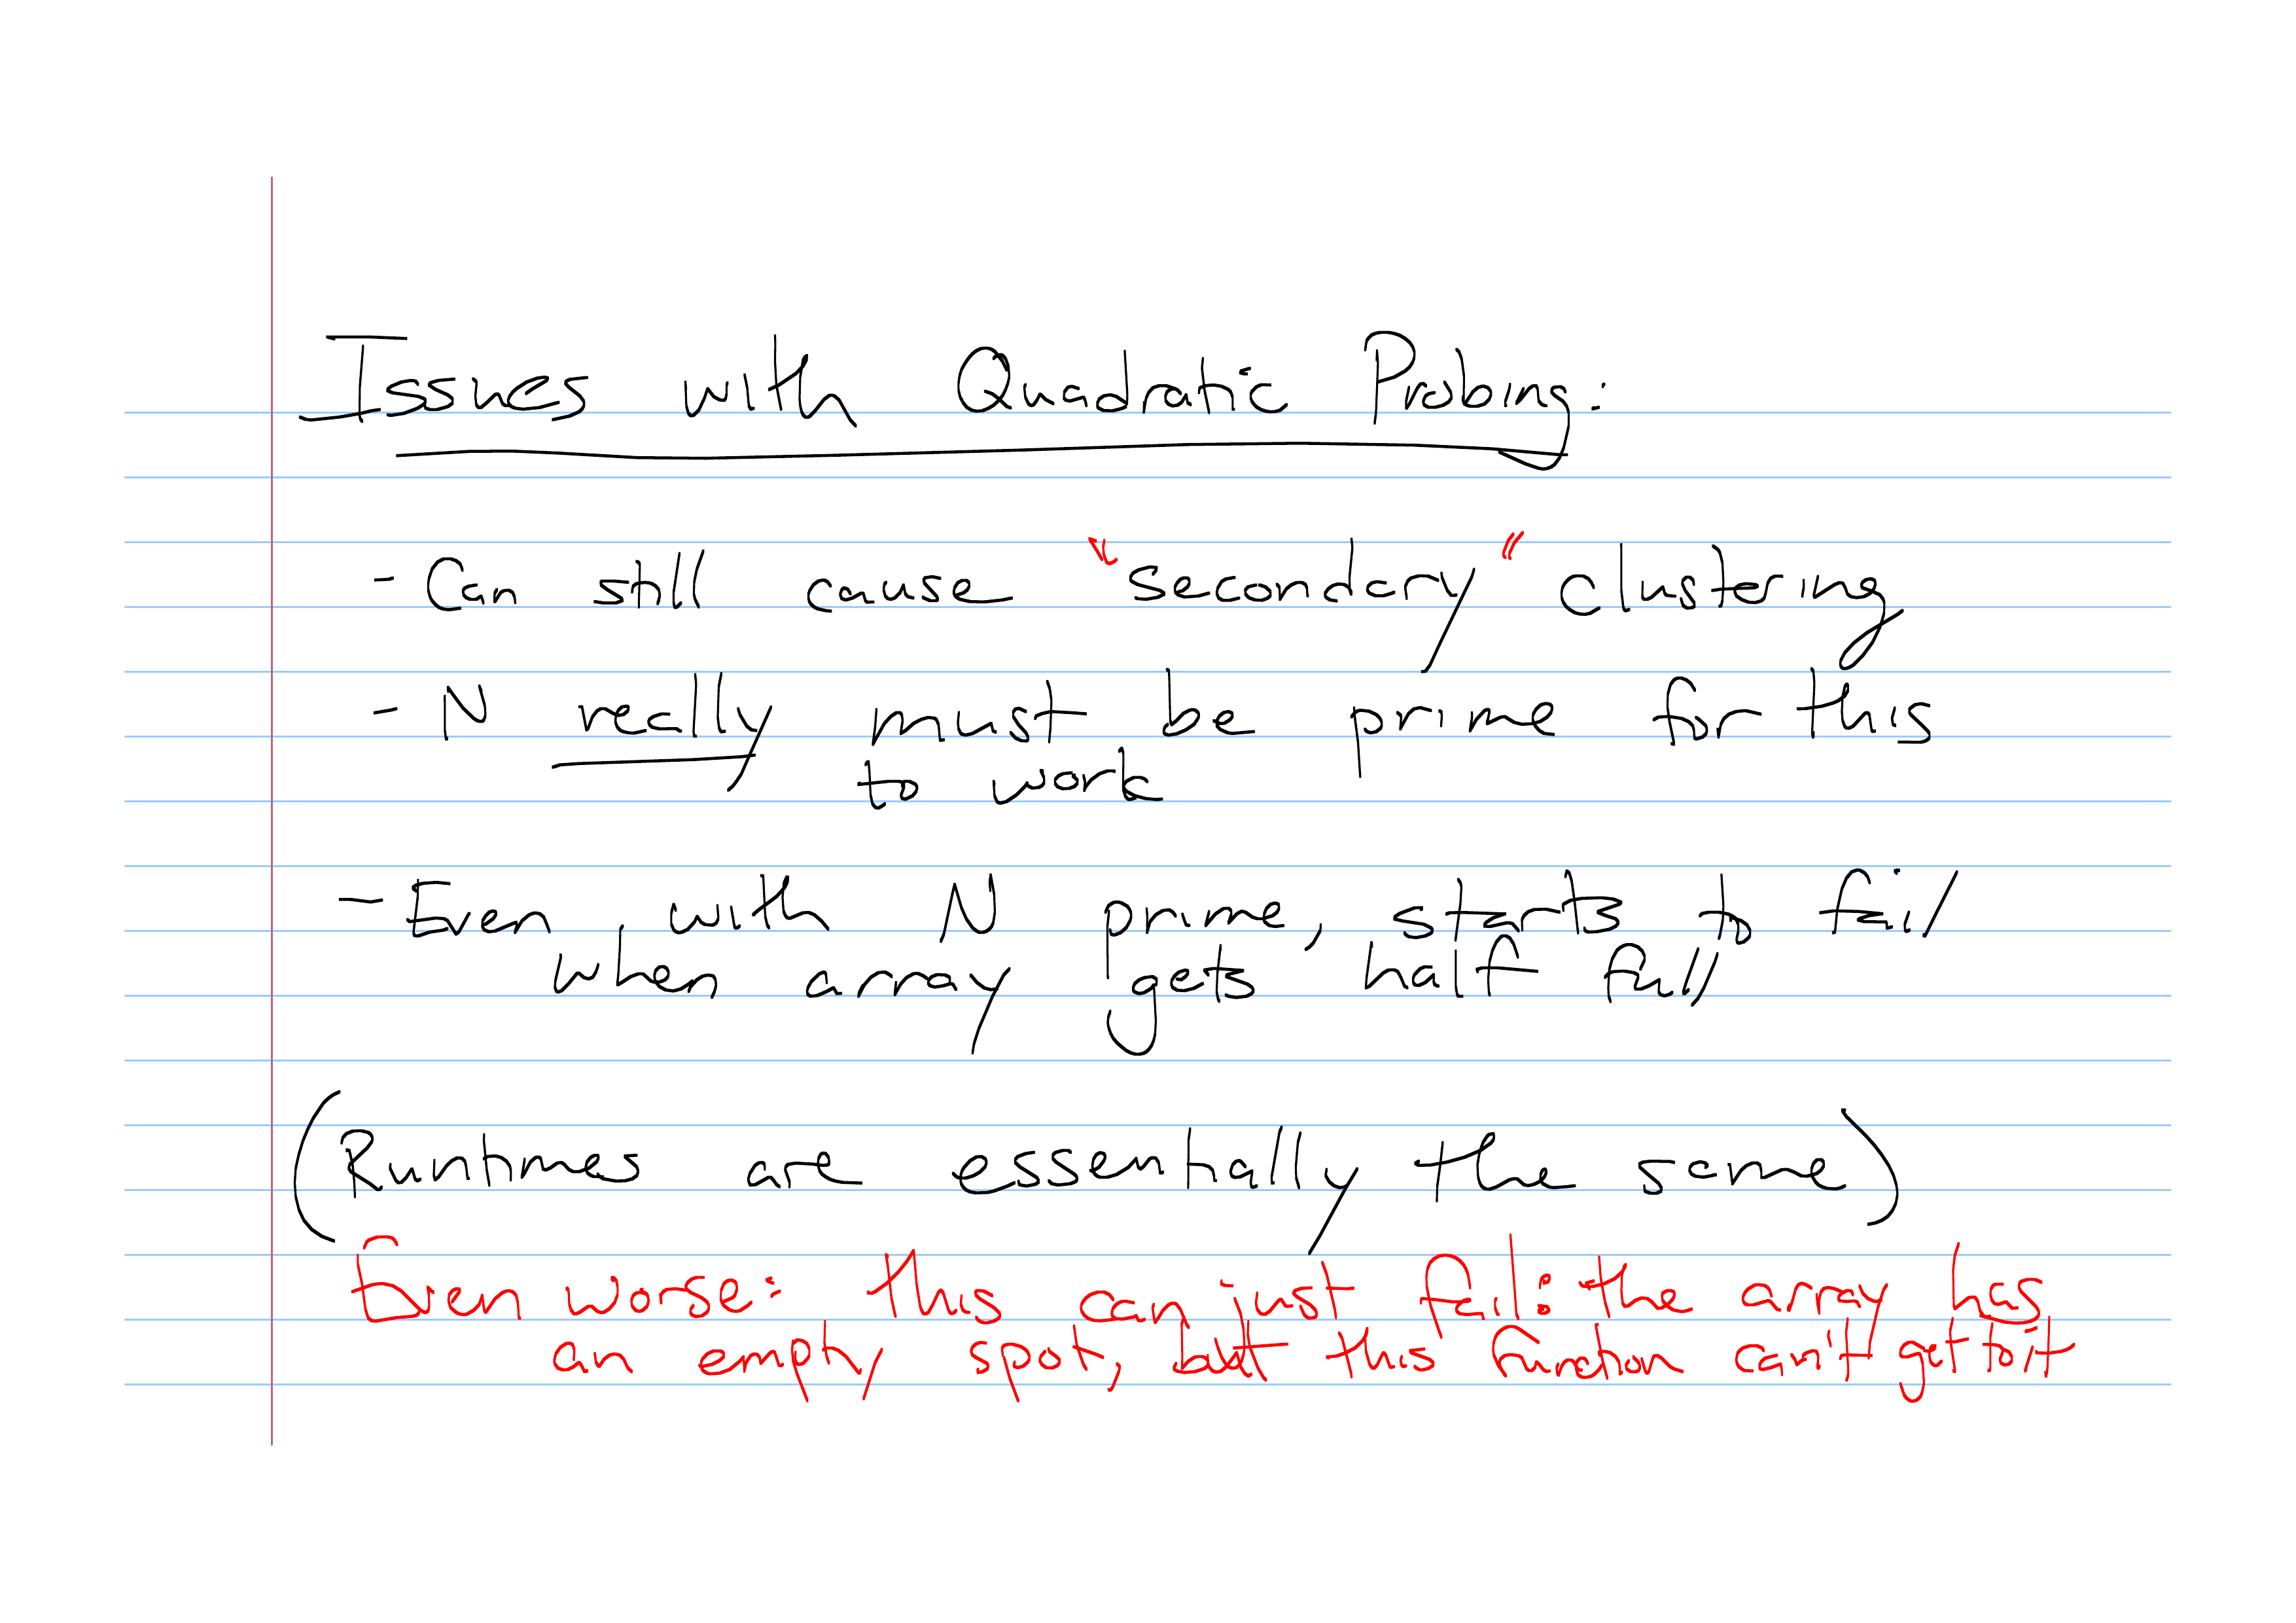 Issues with Quadratic Probing:
- Can still cause "secondary" clustering
- N really must be prime for this
to work
- Even with N prime, starts to fail
when array gets half full
(Runtimes are essentially the same)
Even worse: this can just fail: the array has
an empty spot, but this function can't get to it